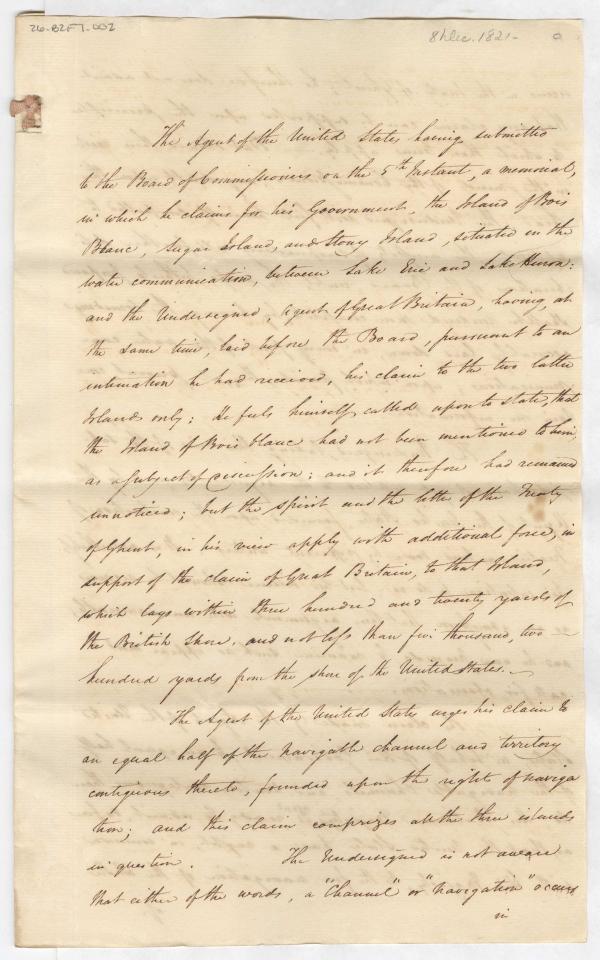 26-B2F7-002
8 Dec. 1821-
The Agent of the United States having submitted
to the Board of Commissioners on the 5th Instant, a memorial,
in which he claims for his Government, the Island of Bois
Blanc, Sugar Island, and Stony Island, situated in the
water communication, between Lake Erie and Lake Huron:
and the Undersigned, Agent of Great Britain, having, at
the same time, laid before the Board, pursuant to an
intimation he had received, his claim to the two latter
Islands only; He feels himself called upon to state, that
the Island of Bois blanc had not been mentioned to him,
as a subject of discussion; and it therefore had remained
unnoticed; but the spirit and the letter of the Treaty
of Ghent, in his view apply with additional force, in
support of the claim of Great Britain, to that Island,
which lays within three hundred and twenty yards of
the British Shore, and not less than five thousand, two
hundred yards from the shore of the United States.
The Agent of the United States urges his claim to
an equal half of the navigable channel and territory
contiguous thereto, founded upon the right of naviga
tion; and this claim comprizes all the three islands
in question. The Undersigned is not aware
that either of the words, a "Channel" or "navigation" occurs
in